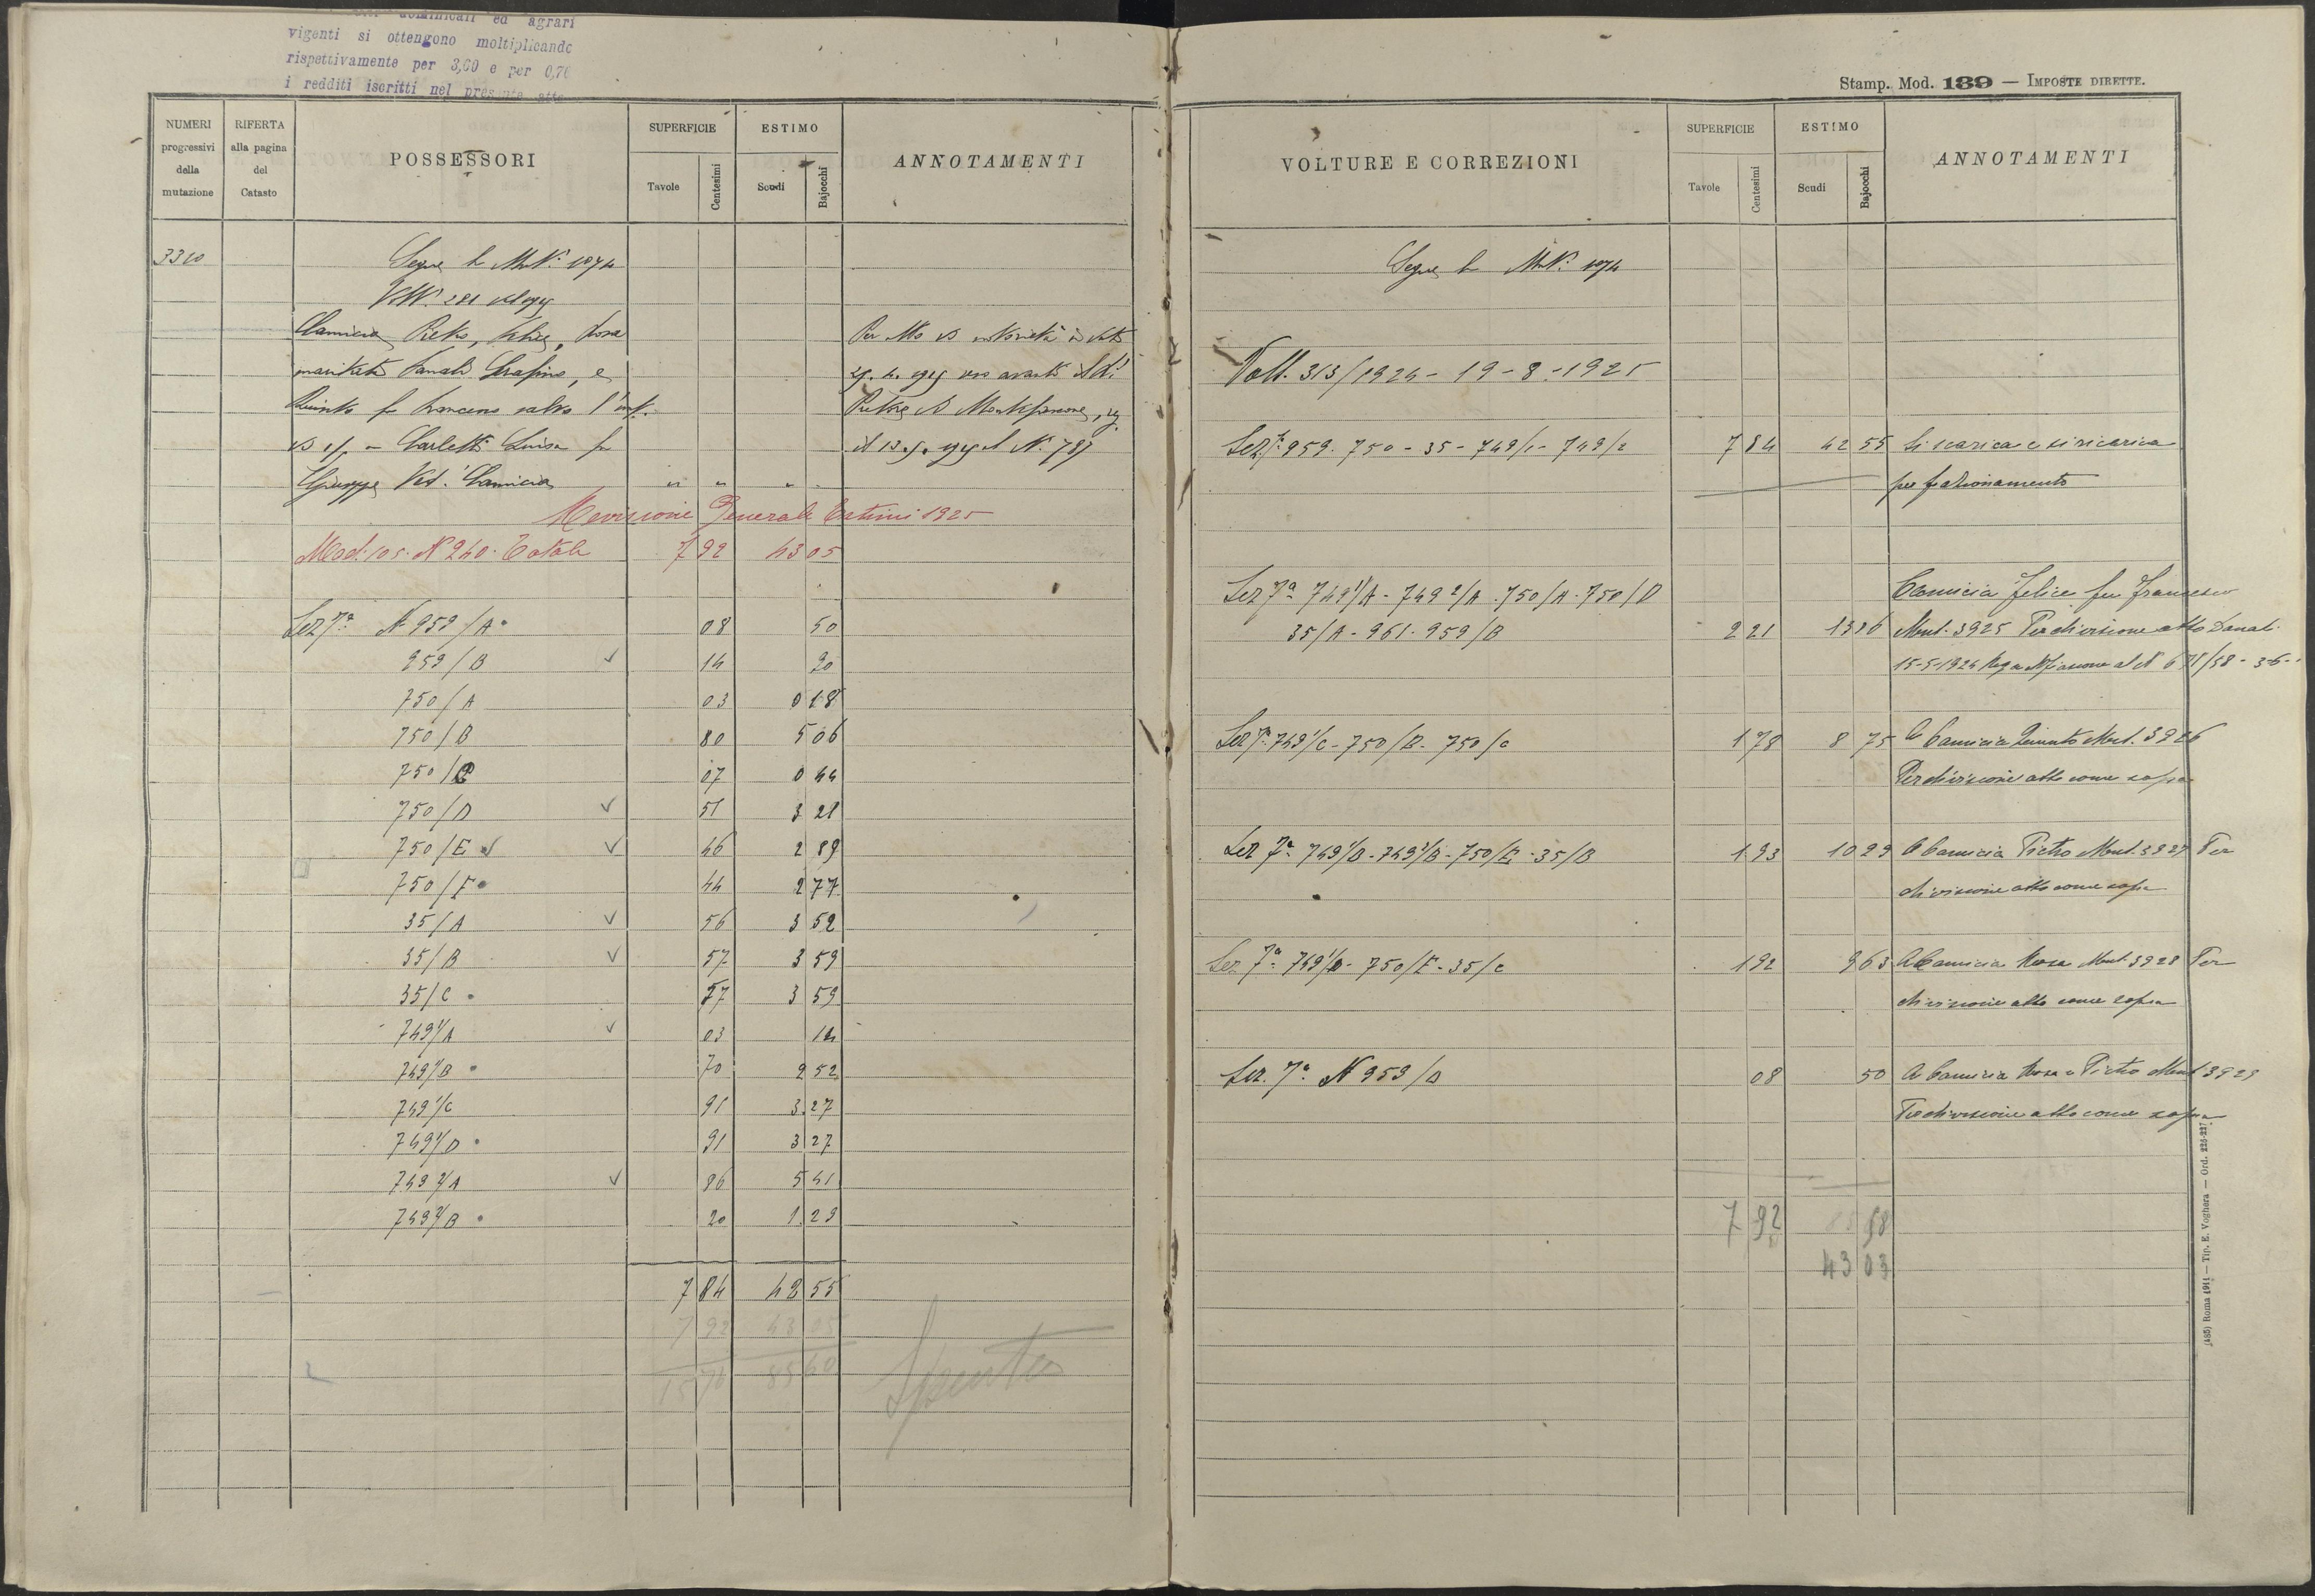 dominicali ed agrari
vigenti si ottengono moltiplicando
rispettivamente per 3,60 e per 0,76
i redditi iscritti nel presente atto
NUMERI progressivi della mutazione
RIFERTA alla pagina del Catasto
POSSESSORI
SUPERFICIE
Tavole
Centesimi
ESTIMO
Scudi
Bajocchi
ANNOTAMENTI
3310
Segue la Mut N: 1074
V.N. 281 del 915
Camicia Pietro, Felice, Rosa
maritata Danali Serafino, e
Quinto fu Francesco salvo l'usuf.
di 1/5 - Carletti Luisa fu
Giuseppe Ved. Camicia " " "
Per Atto di notorietà in data
Pretore di Montefiascone, reg.
il N. 787
Revisione Generale Estimi 1925
Mod. 105. N 240. Totale 7 92 43 05
Sez 7ª N 959/A 08 50
959/B 14 90
750/A 03 0 18
750/B 80 5 06
750/C 07 0 44
750/D 51 3 21
750/E 46 2 89
750/F 44 2 77
35/A 56 3 52
35/B 57 3 59
35/C 57 3 59
749¹/A 03 14
749¹/B 70 2 52
749¹/C 91 3 27
749¹/D 91 3 27
749²/A 86 5 41
749²/B 20 1 29
7 84 42 55
7 92 43 05
15 76 85 60
Spenta
Stamp. Mod. 139 — IMPOSTE DIRETTE.
VOLTURE E CORREZIONI
SUPERFICIE
Tavole
Centesimi
ESTIMO
Scudi
Bajocchi
ANNOTAMENTI
Segue la Mut N: 1074
Volt. 313/1924 - 19-8-1925
Sez 7ª 959. 750 - 35 - 749/1 - 749/2 7 84 42 55 Si scarica e si ricarica
per frazionamento
Sez 7ª 749¹/A - 749²/A - 750/A - 750/D Camicia Felice fu Francesco
35/A - 961 - 959/B 2 21 13 86 Mut. 3925 Per divisione atto Danali
15-5-1924
Sez 7ª 749¹/C - 750/B - 750/C 1 78 8 75 A Camicia Quinto Mut. 3926
Per divisione atto come sopra
Sez 7ª 749¹/B - 749²/B - 750/E - 35/B 1 93 10 29 A Camicia Pietro Mut. 3927 Per
divisione atto come sopra
Sez 7ª 749¹/D - 750/F - 35/C 1 92 9 63 A Camicia Rosa Mut. 3928 Per
divisione atto come sopra
Sez. 7ª N 959/A 08 50 A Camicia Rosa e Pietro Mut 3929
Per divisione atto come sopra
7 92 58
43 03
(485) Roma 1911 — Tip. E. Voghera — Ord. 224-227